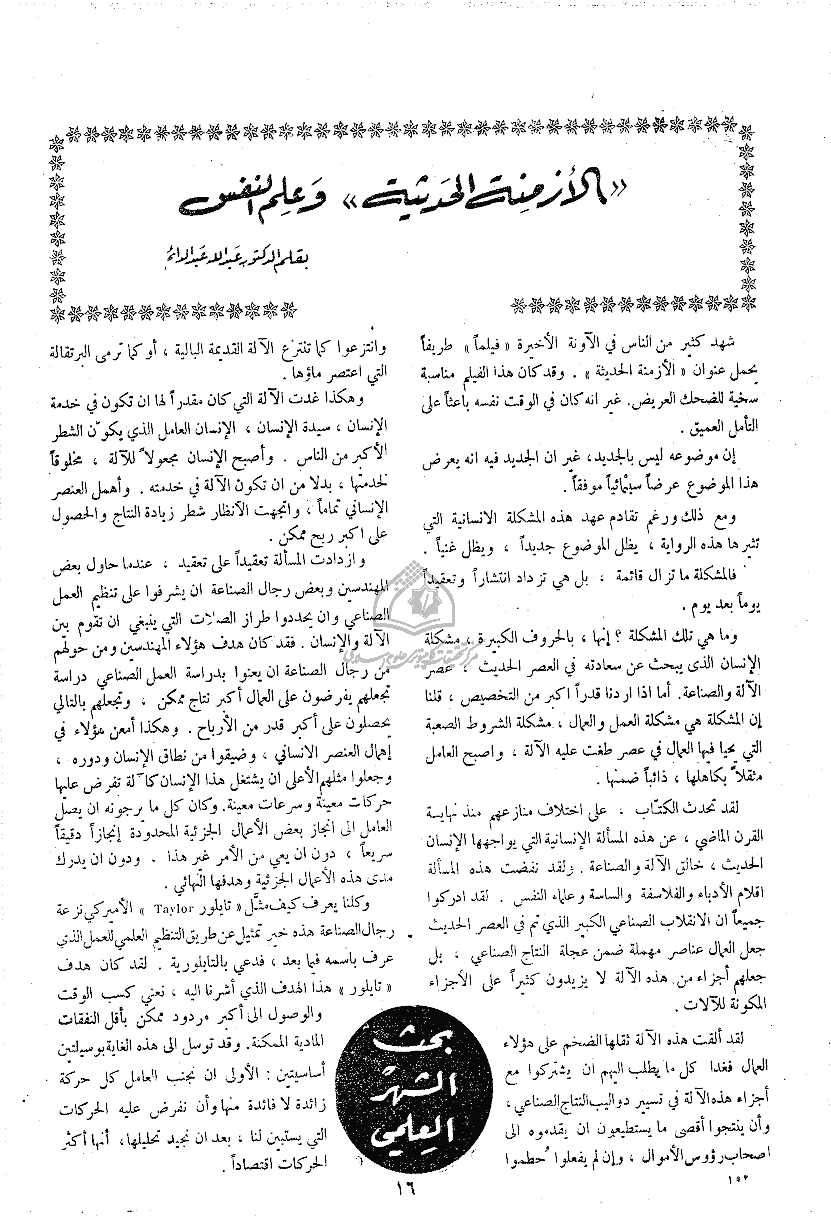 «الأزمنة الحديثة» وعلم النفس
بقلم الدكتور عبد الله عبد الدائم
شهد كثير من الناس في الآونة الأخيرة « فيلماً » طريفاً
يحمل عنوان « الأزمنة الحديثة » . وقد كان هذا الفيلم مناسبة
سخية للضحك العريض. غير انه كان في الوقت نفسه باعثاً على
التأمل العميق .
إن موضوعه ليس بالجديد، غير ان الجديد فيه انه يعرض
هذا الموضوع عرضاً سينمائياً موفقاً .
ومع ذلك ورغم تقادم عهد هذه المشكلة الانسانية التي
تثيرها هذه الرواية ، يظل الموضوع جديداً ، ويظل غنياً .
فالمشكلة ما تزال قائمة ، بل هي تزداد انتشاراً وتعقيداً
يوماً بعد يوم .
وما هي تلك المشكلة ؟ إنها ، بالحروف الكبيرة ، مشكلة
الإنسان الذى يبحث عن سعادته في العصر الحديث ، عصر
الآلة والصناعة. أما اذا اردنا قدراً اكبر من التخصيص ، قلنا
إن المشكلة هي مشكلة العمل والعمال ، مشكلة الشروط الصعبة
التي يحيا فيها العمال في عصر طغت عليه الآلة ، واصبح العامل
مثقلاً بكاهلها ، ذائباً ضمنها .
لقد تحدث الكتّاب ، على اختلاف منازعهم منذ نهاية
القرن الماضي ، عن هذه المسألة الإنسانية التي يواجهها الإنسان
الحديث ، خالق الآلة والصناعة . ولقد نفضت هذه المسألة
اقلام الأدباء والفلاسفة والساسة وعلماء النفس . لقد ادركوا
جميعاً ان الانقلاب الصناعي الكبير الذي تم في العصر الحديث
جعل العمال عناصر مهملة ضمن عجلة النتاج الصناعي ، بل
جعلهم أجزاء من هذه الآلة لا يزيدون كثيراً على الأجزاء
المكونة للآلات .
لقد ألقت هذه الآلة ثقلها الضخم على هؤلاء
العمال فغدا كل ما يطلب اليهم ان يشتركوا مع
أجزاء هذه الآلة في تسيير دواليب النتاج الصناعي ،
وأن ينتجوا أقصى ما يستطيعون ان يقدموه الى
اصحاب رؤوس الأموال ، وإن لم يفعلوا حُطموا
وانتزعوا كما تنتزع الآلة القديمة البالية ، أو كما ترمى البرتقالة
التي اعتصر ماؤها .
وهكذا غدت الآلة التي كان مقدراً لها ان تكون في خدمة
الإنسان ، سيدة الإنسان ، الإنسان العامل الذي يكوّن الشطر
الأكبر من الناس . وأصبح الإنسان مجعولاً للآلة ، مخلوقاً
لخدمتها ، بدلا من ان تكون الآلة في خدمته . وأهمل العنصر
الإنساني تماماً ، واتجهت الأنظار شطر زيادة النتاج والحصول
على اكبر ربح ممكن .
وازدادت المسألة تعقيداً على تعقيد ، عندما حاول بعض
المهندسين وبعض رجال الصناعة ان يشرفوا على تنظيم العمل
الصناعي وان يحددوا طراز الصلات التي ينبغي ان تقوم بين
الآلة والإنسان . فقد كان هدف هؤلاء المهندسين ومن حولهم
من رجال الصناعة ان يعنوا بدراسة العمل الصناعي دراسة
تجعلهم يفرضون على العمال أكبر نتاج ممكن ، وتجعلهم بالتالي
يحصلون على أكبر قدر من الأرباح . وهكذا أمعن هؤلاء في
إهمال العنصر الانساني ، وضيقوا من نطاق الإنسان ودوره ،
وجعلوا مثلهم الأعلى ان يشتغل هذا الإنسان كآلة تفرض عليها
حركات معينة وسرعات معينة. وكان كل ما يرجونه ان يصل
العامل الى انجاز بعض الأعمال الجزئية المحدودة إنجازاً دقيقاً
سريعاً ، دون ان يعي من الأمر غير هذا . ودون ان يدرك
مدى هذه الأعمال الجزئية وهدفها النهائي .
وكلنا يعرف كيف مثّل « تايلور Taylor » الأميركي نزعة
رجال الصناعة هذه خير تمثيل عن طريق التنظيم العلمي للعمل الذي
عرف باسمه فيما بعد ، فدعي بالتايلورية . لقد كان هدف
« تايلور » هذا الهدف الذي أشرنا اليه ، نعني كسب الوقت
والوصول الى أكبر مردود ممكن بأقل النفقات
المادية الممكنة. وقد توسل الى هذه الغاية بوسيلتين
أساسيتين : الأولى ان نجنب العامل كل حركة
زائدة لا فائدة منها وأن نفرض عليه الحركات
التي يستبين لنا ، بعد ان نجيد تحليلها، أنها أكثر
الحركات اقتصاداً .
بحث
الشهر
العلمي
١٦